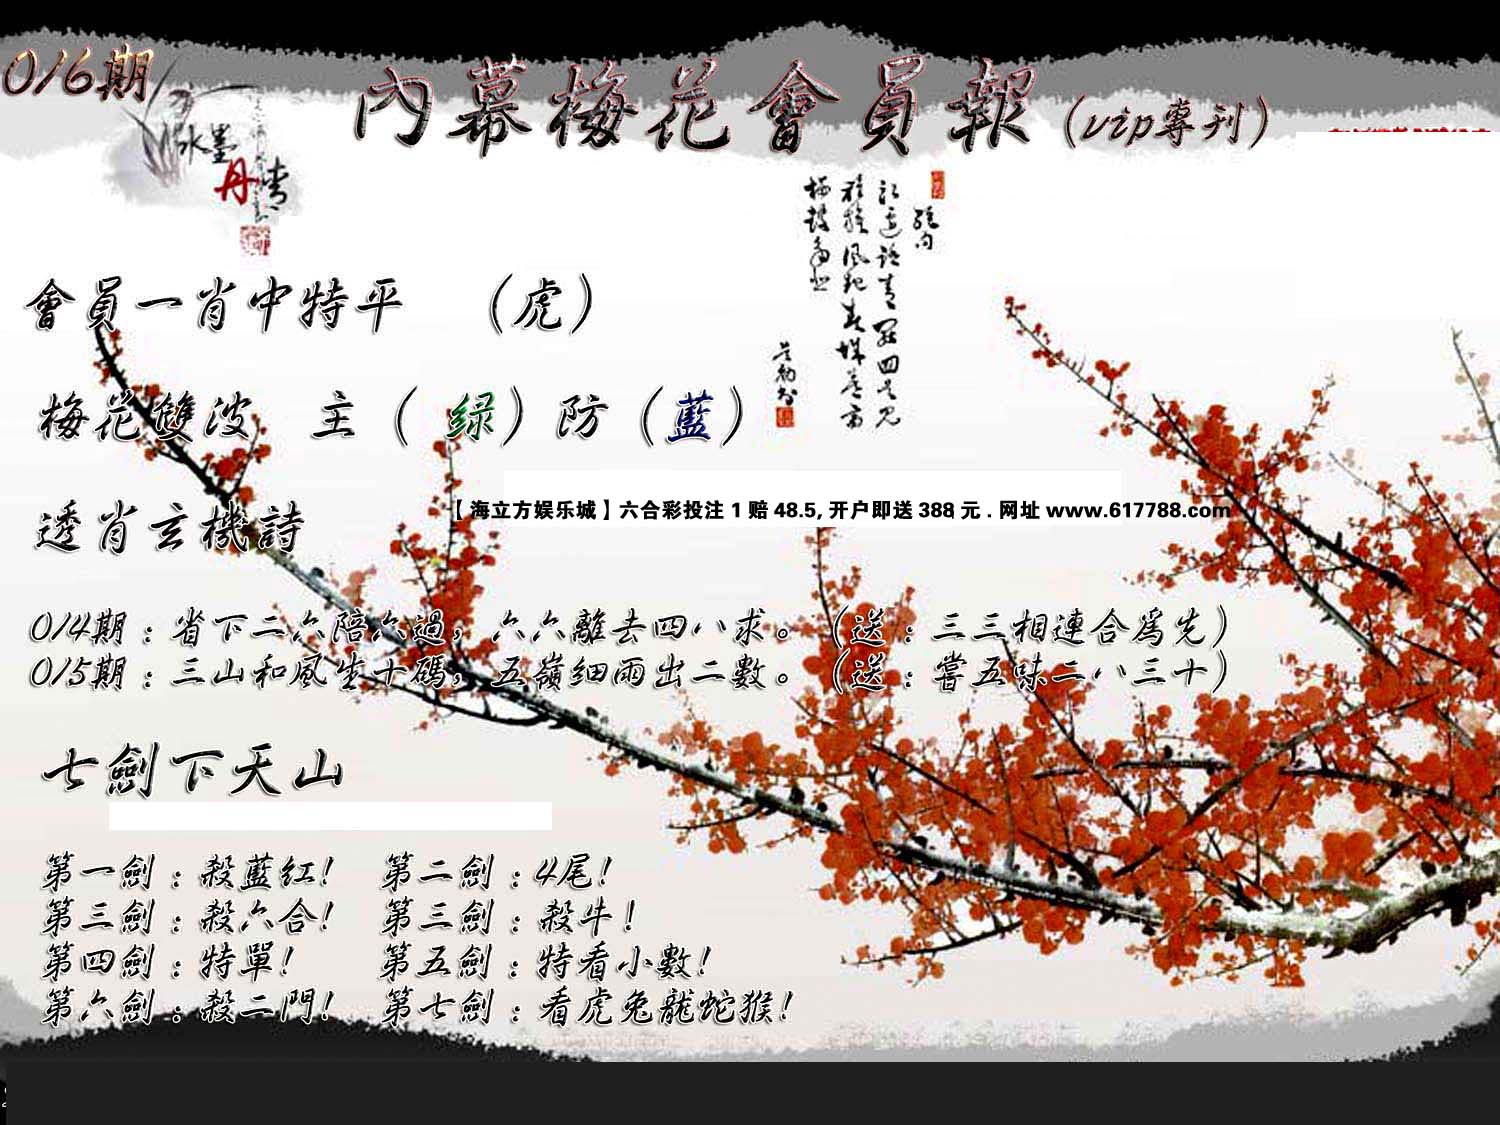 016期
內幕梅花會員報(vip專刊)
水墨
丹青
會員一肖中特平 (虎)
梅花雙波 主(绿)防(藍)
【海立方娱乐城】六合彩投注1赔48.5,开户即送388元.网址www.617788.com
透肖玄機詩
014期:省下二六陪六過,六六離去四八求。(送:三三相連合為先)
015期:三山和風生十碼,五嶺細雨出二數。(送:嘗五味二八三十)
七劍下天山
第一劍:殺藍紅! 第二劍:4尾!
第三劍:殺六合! 第三劍:殺牛!
第四劍:特單! 第五劍:特看小數!
第六劍:殺二門! 第七劍:看虎兔龍蛇猴!